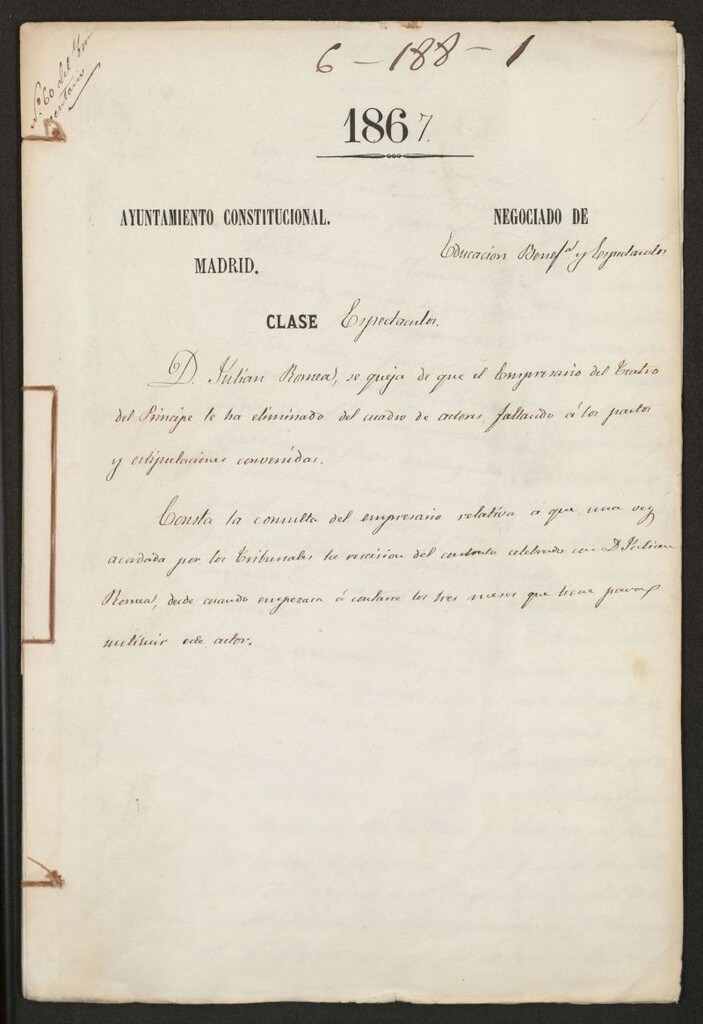 Nº 60 del In
ventario
6-188-1
1867.
AYUNTAMIENTO CONSTITUCIONAL.
MADRID.
NEGOCIADO DE
Educacion Benefª y Espectaculos
CLASE Espectaculos.
D. Julian Romea, se queja de que el Empresario del Teatro
del Principe le ha eliminado del cuadro de actores, faltando á los pactos
y estipulaciones convenidas.
Consta la consulta del empresario relativa á que una vez
acordada por los Tribunales la rescision del contrato celebrado con D. Julian
Romea, desde cuando empezara á contarse los tres meses que tiene para
sustituir este actor.